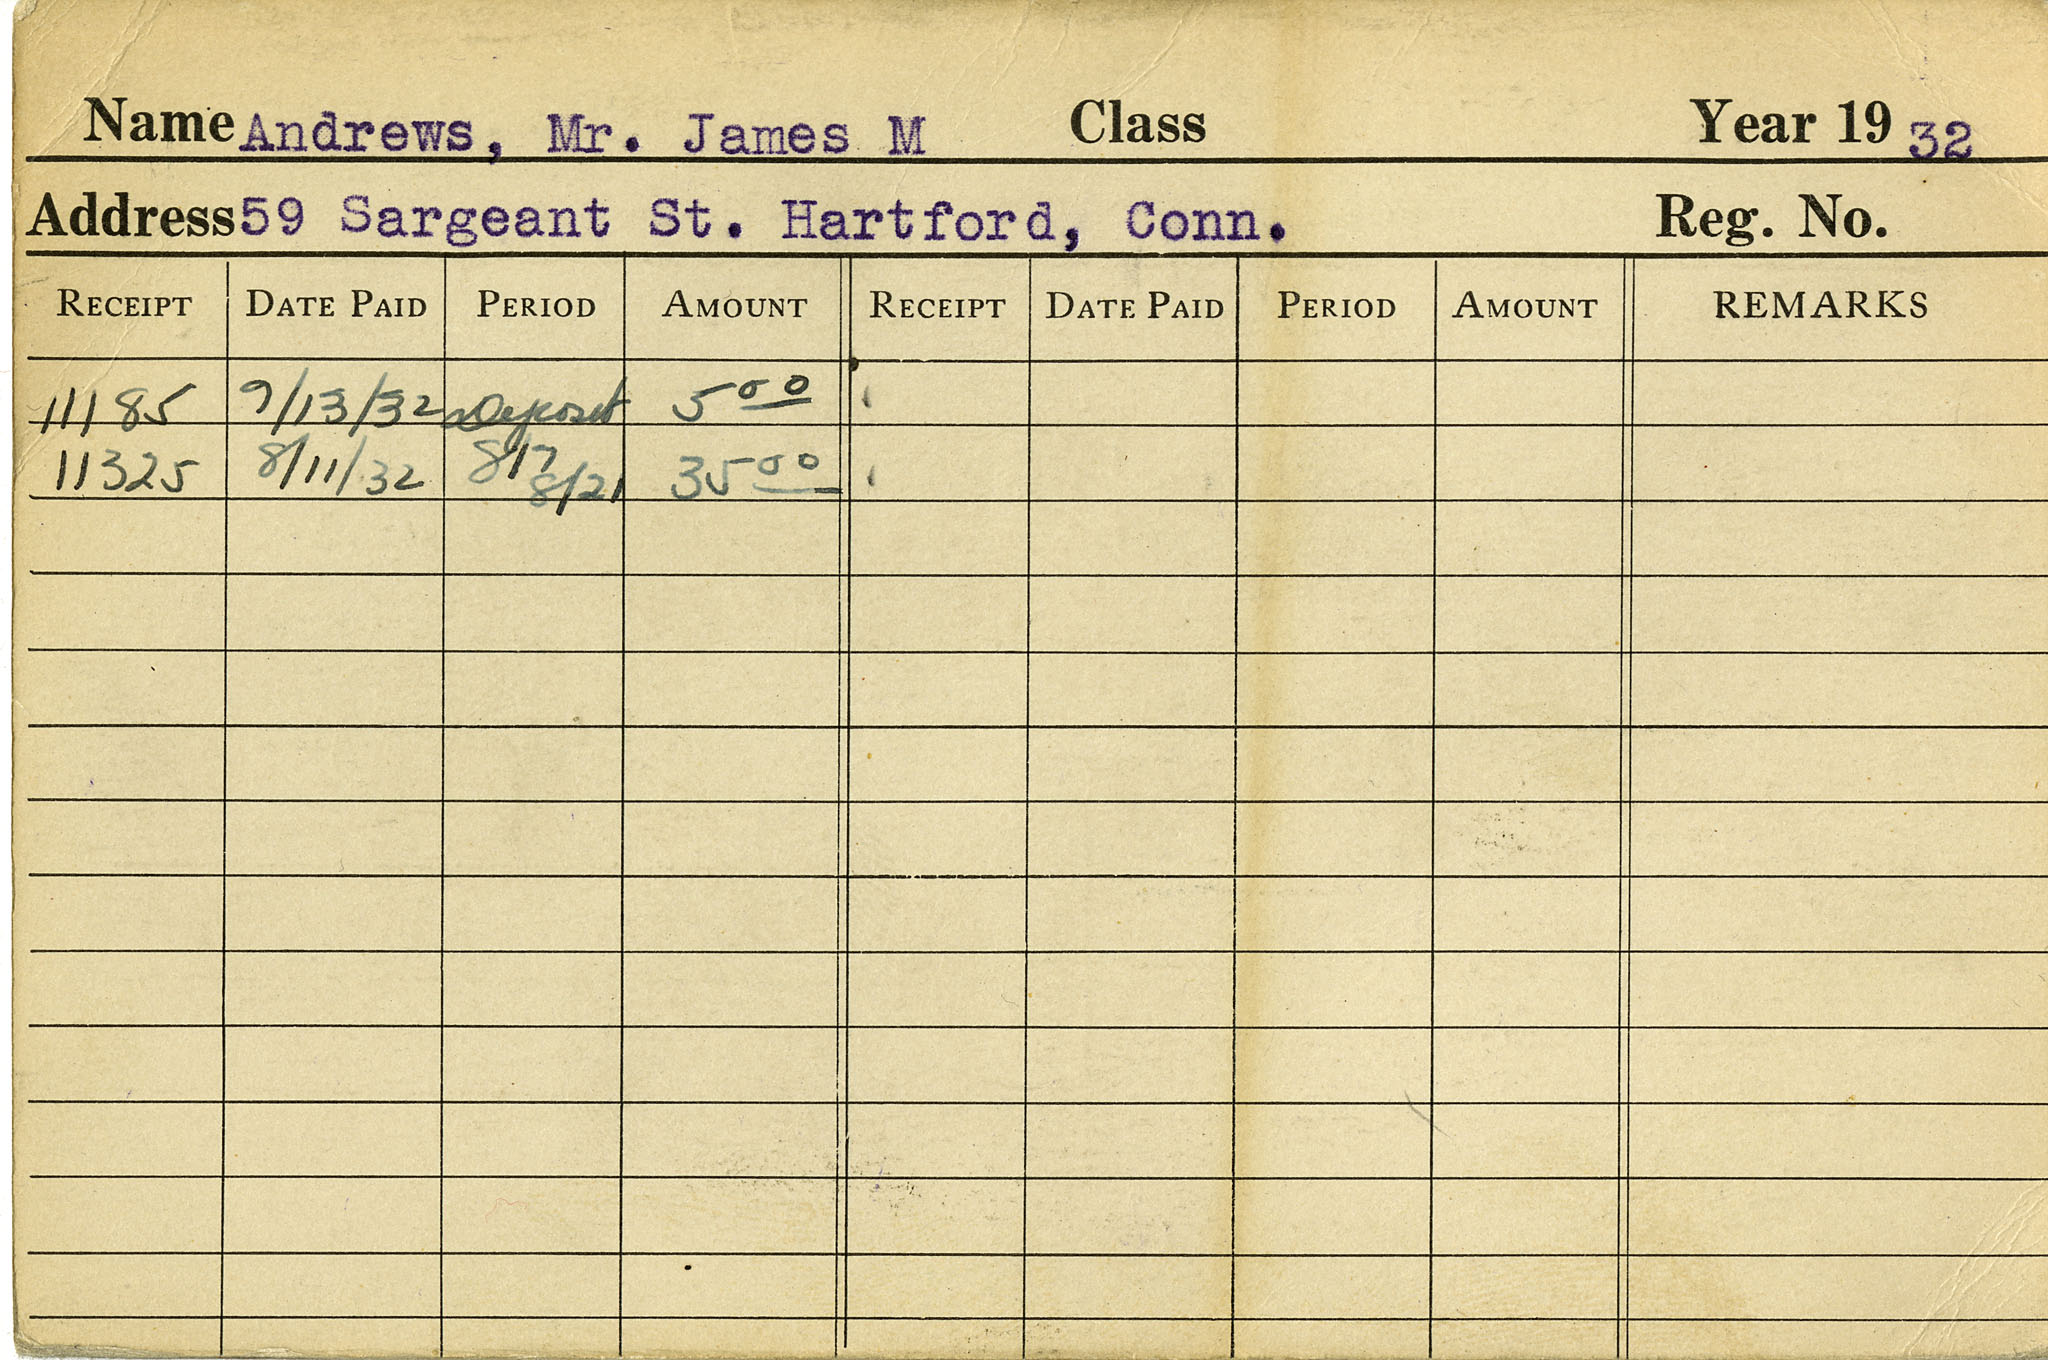 Name Andrews, Mr. James M Class Year 19 32
Address 59 Sargeant St. Hartford, Conn. Reg. No.
RECEIPT DATE PAID PERIOD AMOUNT RECEIPT DATE PAID PERIOD AMOUNT REMARKS
11185 9/13/32 Deposit 5 00
11325 8/11/32 8/17 8/21 35 00